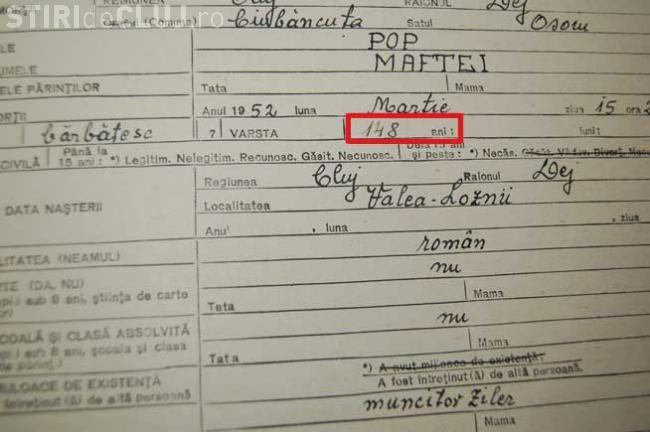 STIRIdeCLUJ.ro
MORT REGIUNEA Cluj RAIONUL Dej
Orașul (Comuna) Ciubăncuța Satul Osoiu
POP
MAFTEI
ELE PĂRINȚILOR Tata Mama
ORȚII Anul 1952 luna Martie ziua 15 ora
bărbătesc 7 VARSTA 148 ani: luni:
CIVILĂ Până la 15 ani: *) Legitim. Nelegitim. Recunosc. Găsit. Necunosc. Dela 15 ani și peste: *) Necăs. Căsăt. Văduv. Divorț.
Regiunea Cluj Raionul Dej
DATA NAȘTERII Localitatea Valea-Loznii
Anul , luna , ziua
LITATEA (NEAMUL) român
RTE (DA, NU) nu
pil sub 8 ani, știința de carte
Tata Mama
COALĂ ȘI CLASĂ ABSOLVITĂ nu
sub 8 ani, școala și clasa
Tata Mama
*) A avut mijloace de existență.
A fost întreținut (ă) de altă persoană.
JLOACE DE EXISTENȚĂ
întreținut (ă) de altă persoană muncitor ziler
Mama